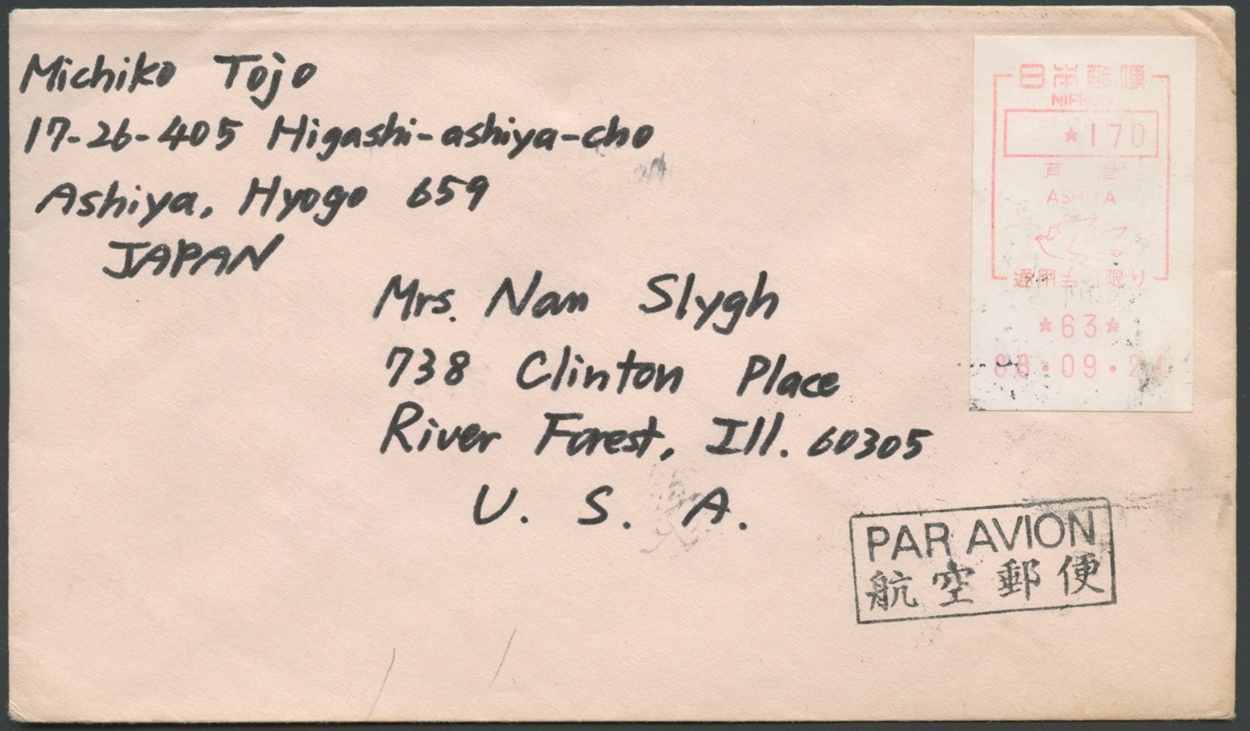 Michiko Tojo
17-26-405 Higashi-ashiya-cho
Ashiya, Hyogo 659
JAPAN
Mrs. Nan Slygh
738 Clinton Place
River Forest, Ill. 60305
U. S. A.
日本郵便
NIPPON
★170
芦屋
ASHIYA
通用当日限り
★63★
88・09・24
PAR AVION
航空郵便